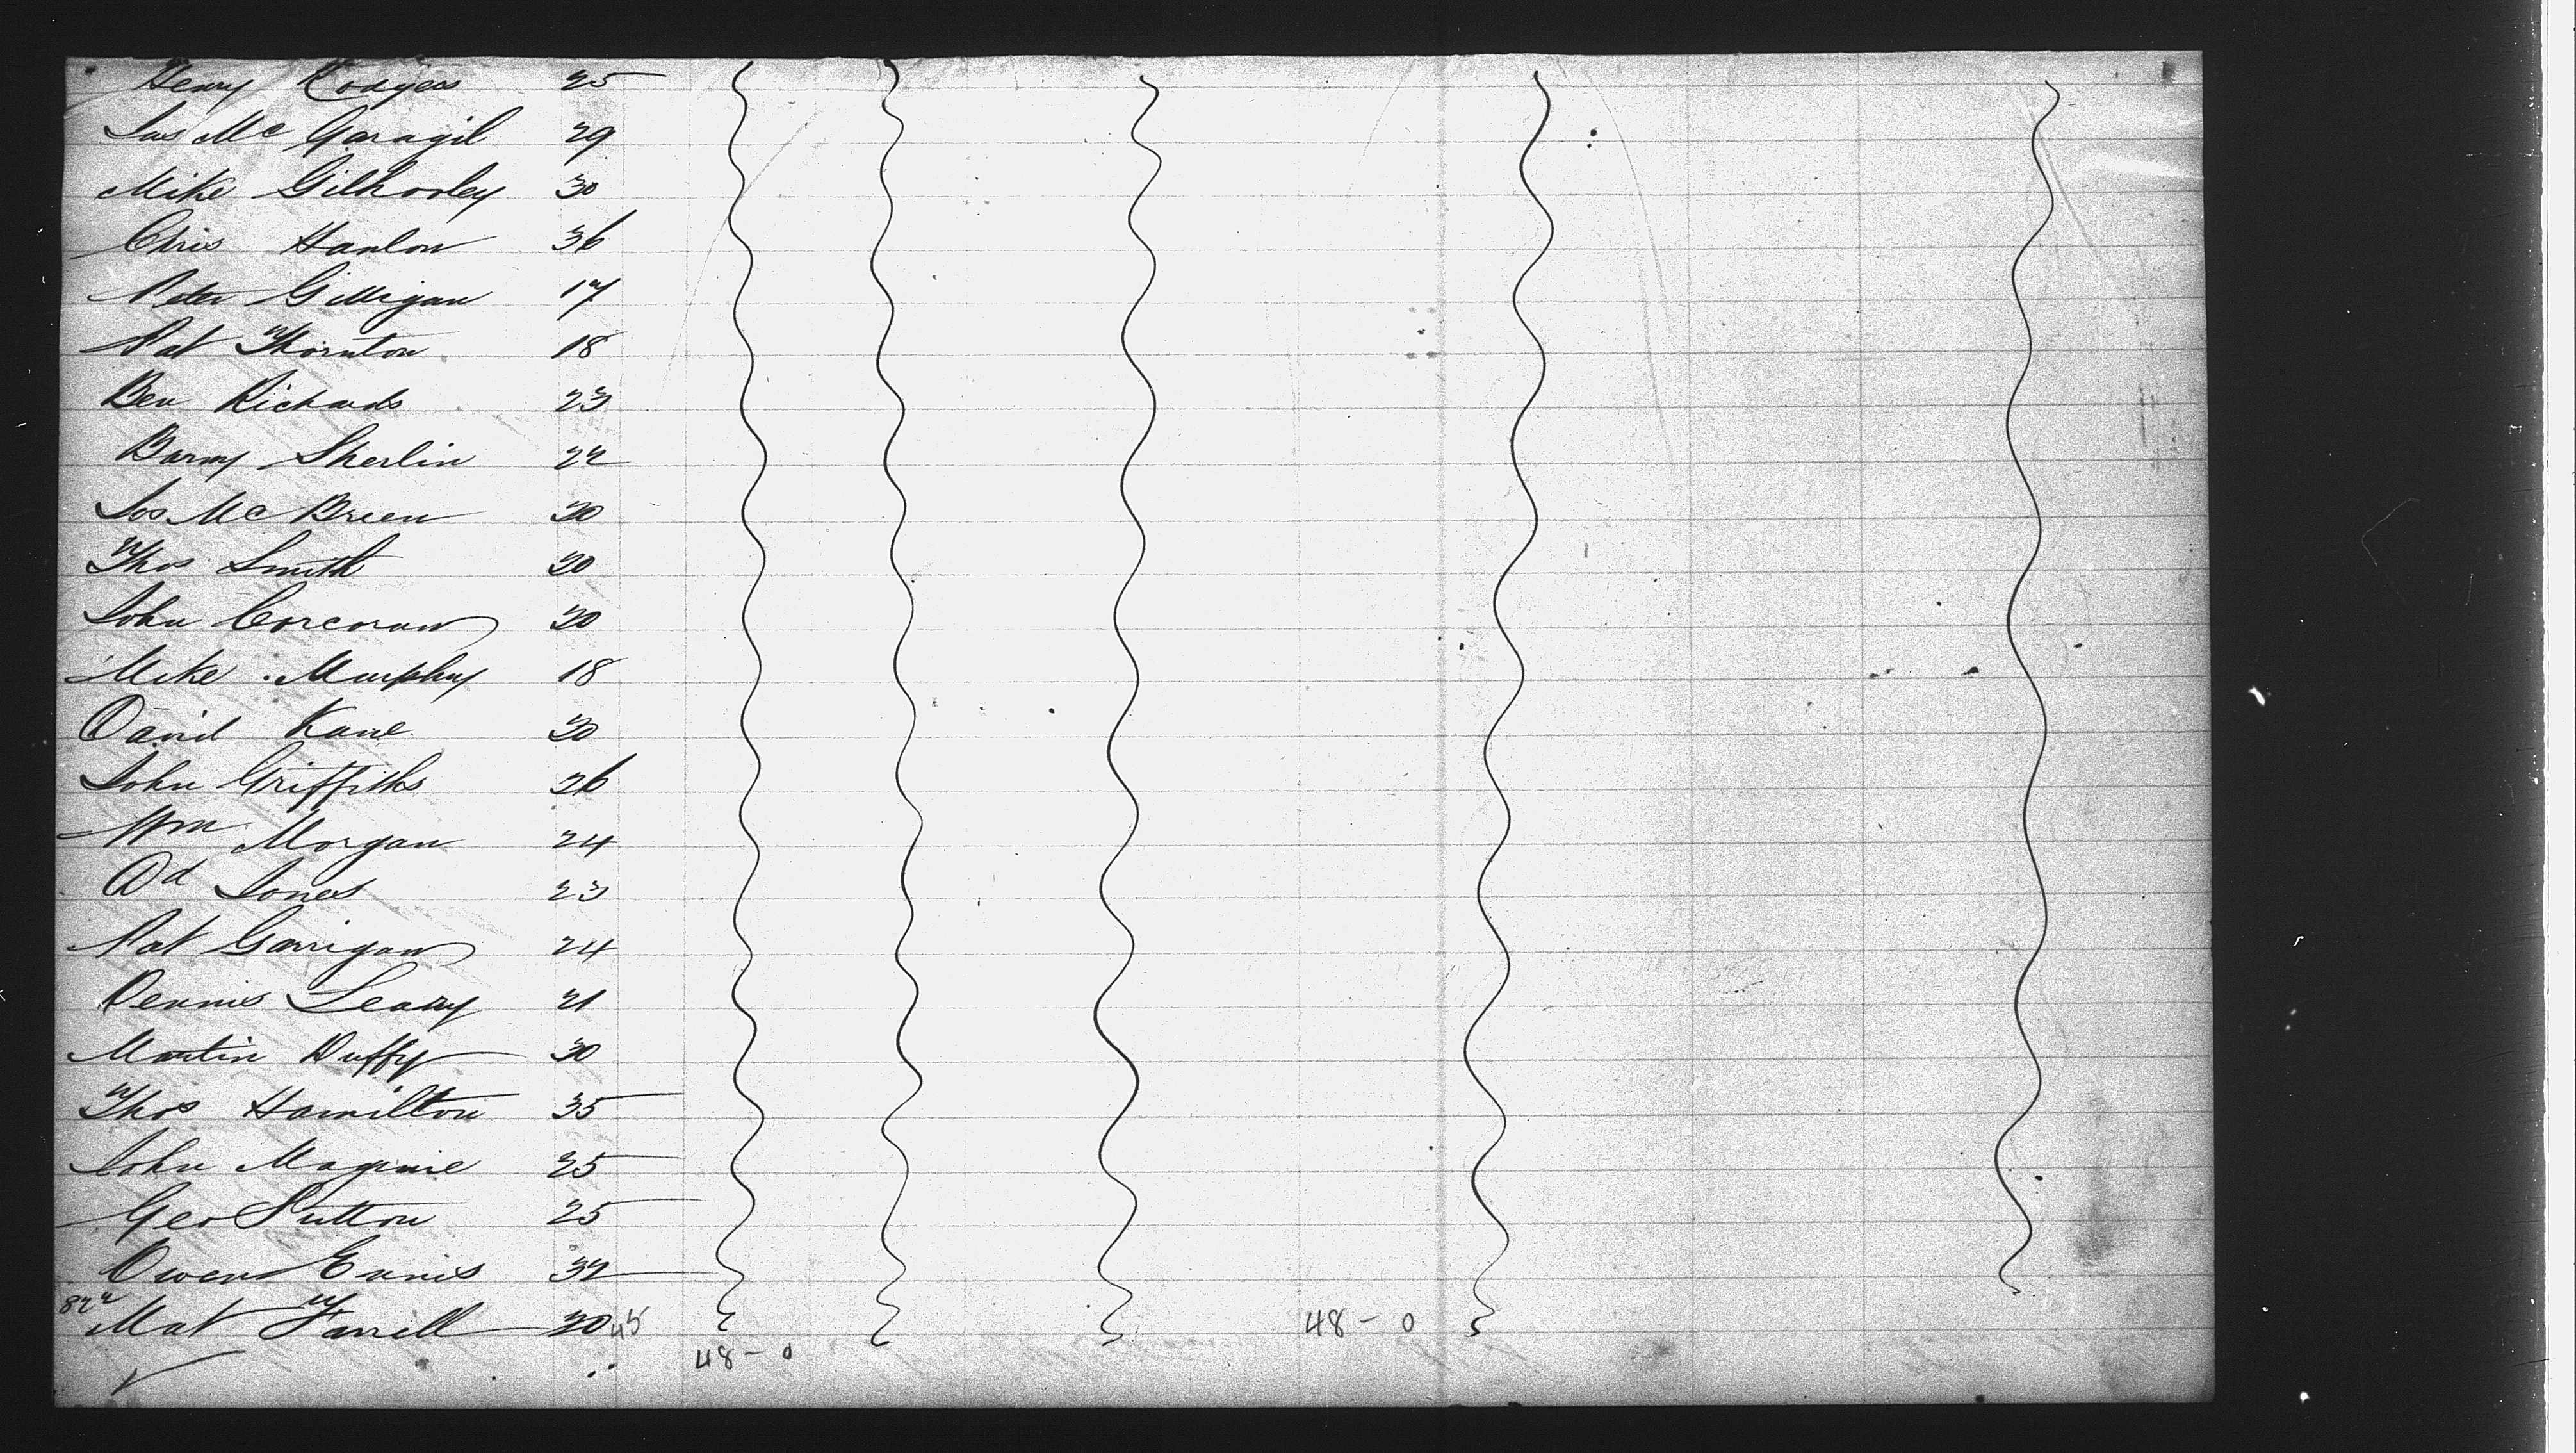 Henry Rodgers 25
Jas Mc Garagil 29
Mike Gilhooley 30
Chris Hanlon 36
Peter Gilligan 17
Pat Thornton 18
Ben Richards 23
Barny Sherlin 22
Jos Mc Breen 20
Thos Smith 20
John Corcoran 20
Mike Murphy 18
David Kane 20
John Griffiths 26
Wm Morgan 24
Dd Jones 23
Pat Garrigan 24
Dennis Leary 21
Martin Duffy 30
Thos Hamilton 35
John Maguire 25
Geo Sutton 25
Owen Ennis 32
822 Mat Farrell 20 45 48 - 0
48 - 0